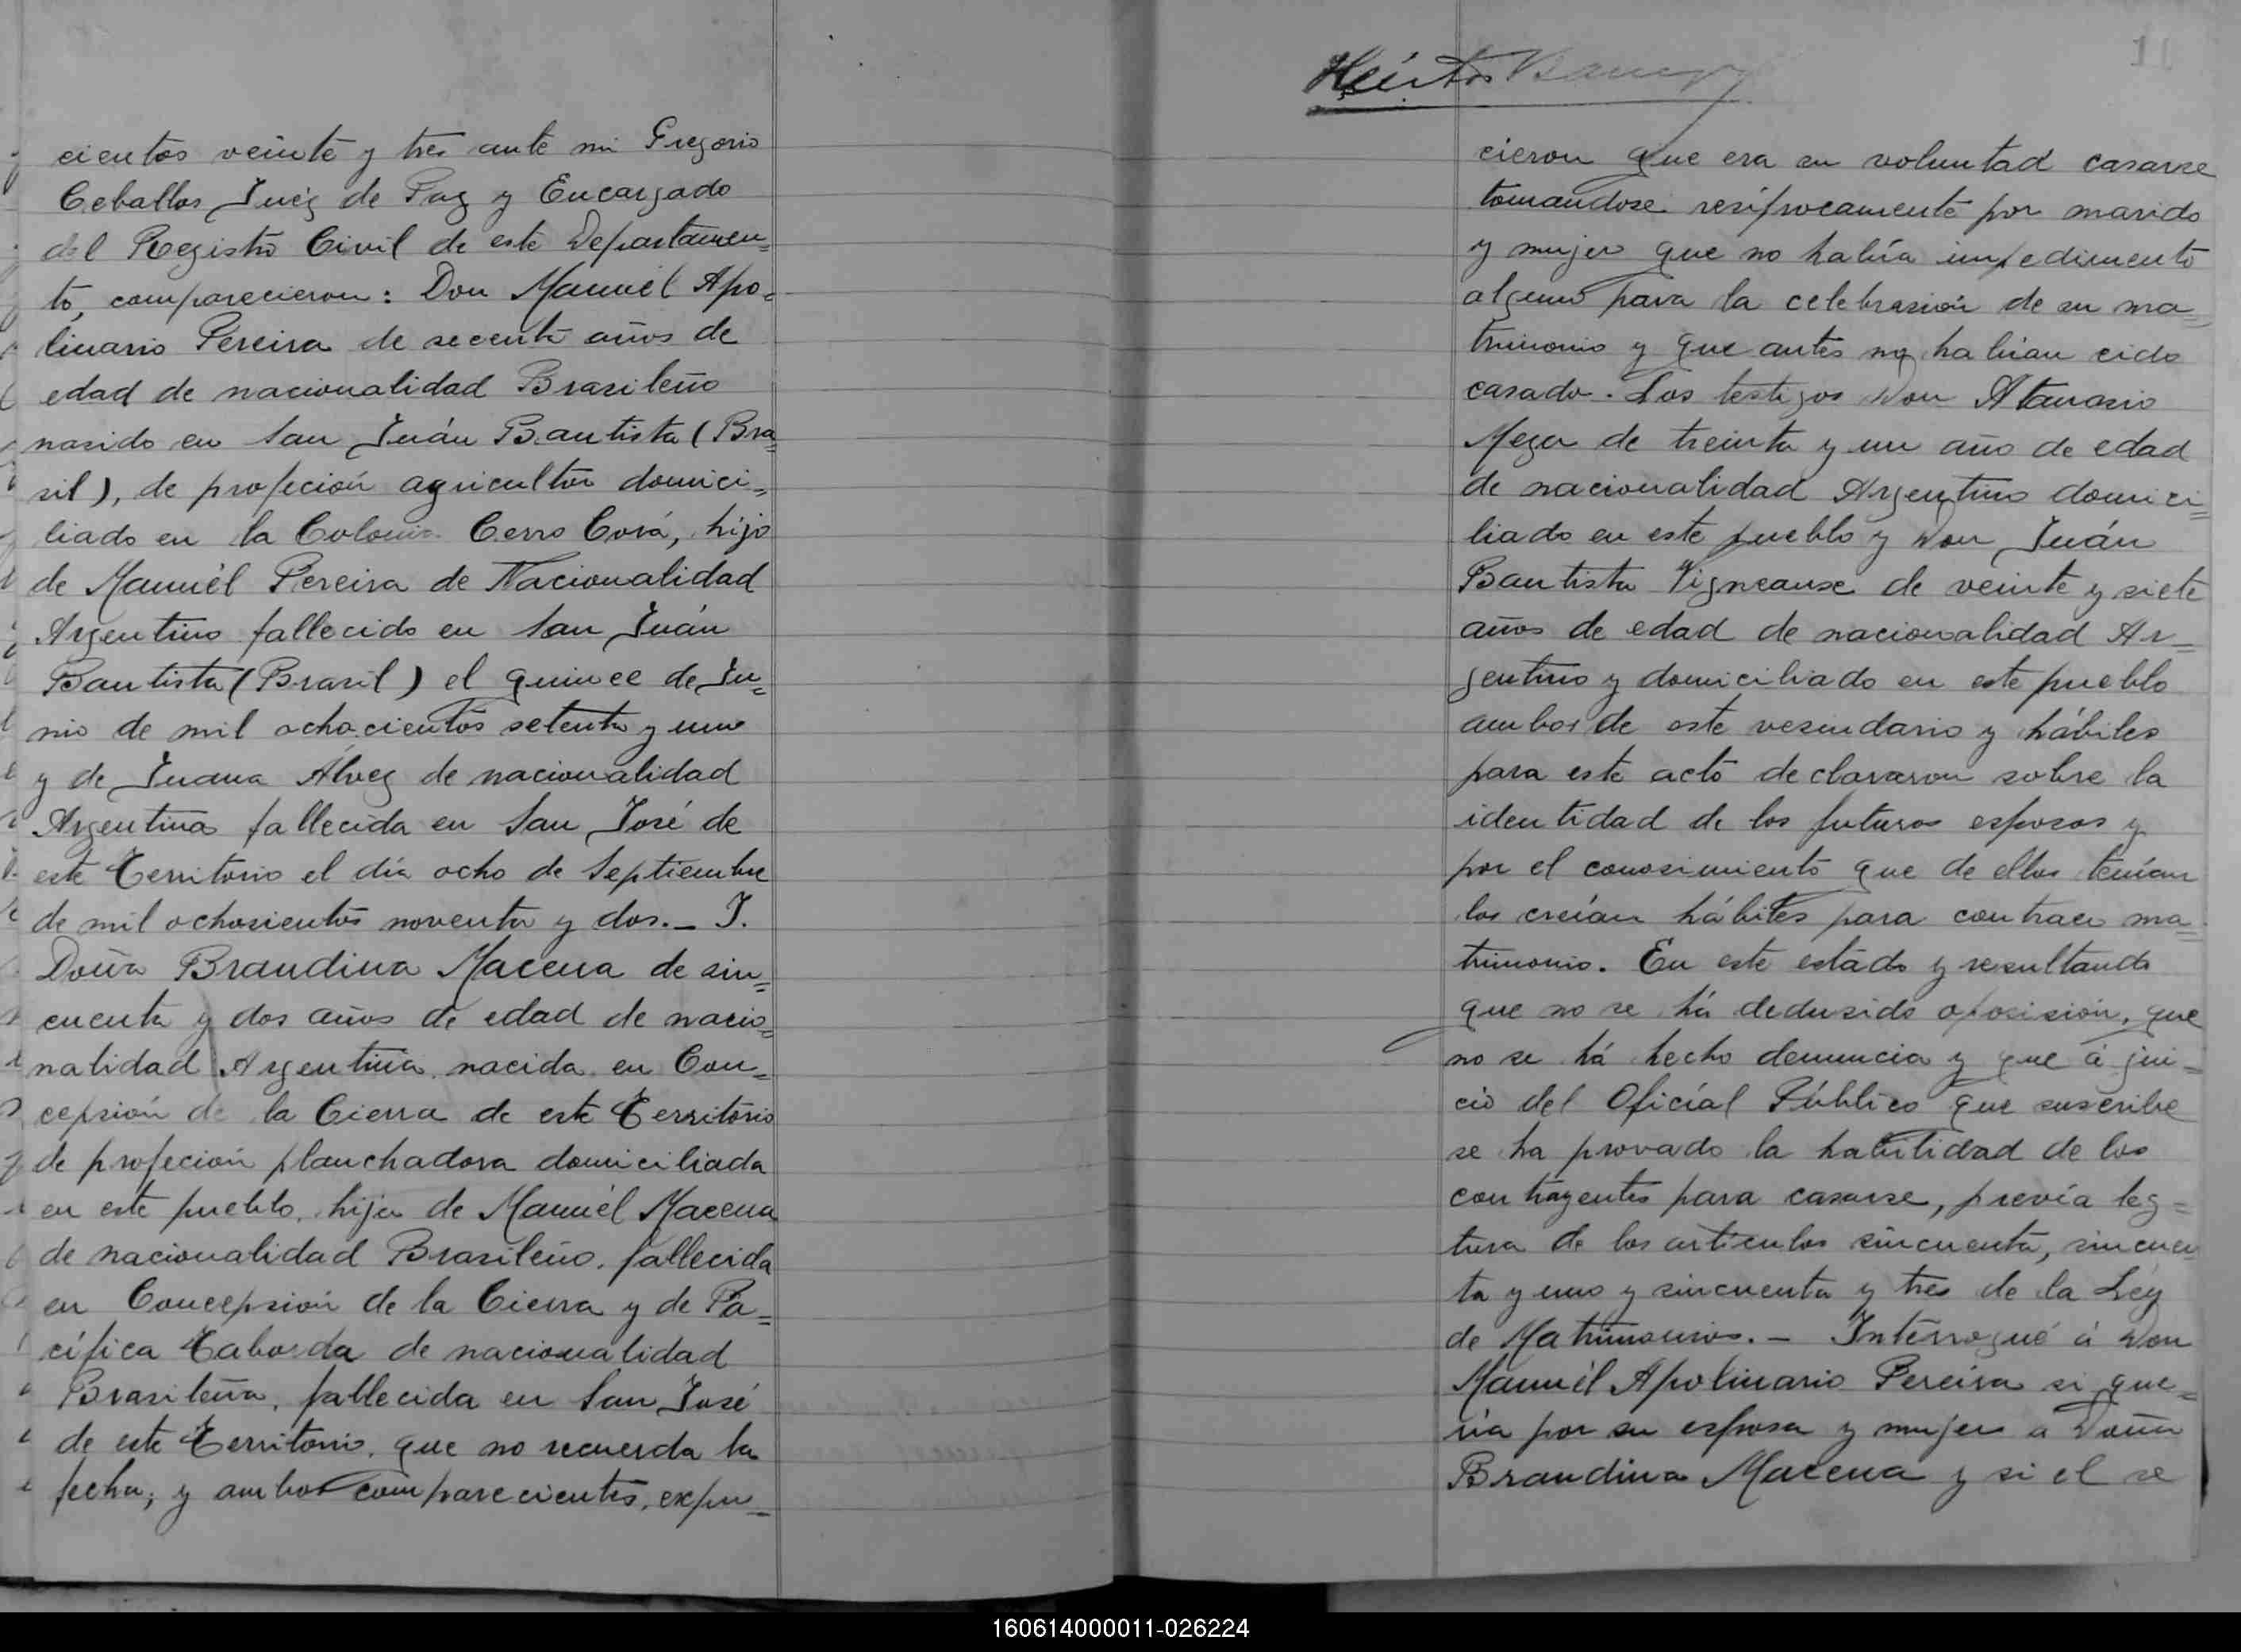 cientos veinte y tres ante mi Gregorio
Ceballos Juéz de Paz y Encargado
del Registro Civil de este Departamen=
to, comparecieron: Don Manuél Apo=
linario Pereira de secenta años de
edad de nacionalidad Brasileño
nasido en San Juán Bautista (Bra=
sil), de profeción agricultor domici=
liado en la Colonia Cerro Corá, hijo
de Manuél Pereira de Nacionalidad
Argentino fallecido en San Juán
Bautista (Brasil) el quince de Ju=
nio de mil ochocientos setenta y uno
y de Juana Álvez de nacionalidad
Argentina fallecida en San José de
este Territorio el día ocho de Septiembre
de mil ochosientos noventa y dos._ I.
Doña Brandina Macena de sin=
cuenta y dos años de edad de nacio=
nalidad Argentina nacida en Con=
cepsión de la Cierra de este Territorio
de profeción planchadora domiciliada
en este pueblo, hija de Manuél Macena
de nacionalidad Brasileño, fallecida
en Concepsión de la Cierra y de Pa=
cífica Taborda de nacionalidad
Brasileña, fallecida en San José
de este Territorio, que no recuerda la
fecha; y ambos comparecientes, expu=
11
cieron que era su voluntad casarse
tomandose resíprocamente por marido
y mujer que no había impedimento
alguno para la celebrasión de su ma=
trimonio y que antes no habian cido
casado. Los testigos Don Atanasio
Meza de treinta y un año de edad
de nacionalidad Argentino domici=
liado en este pueblo y Don Juán
Bautista Vigneause de veinte y siete
años de edad de nacionalidad Ar=
gentino y domiciliado en este pueblo
ambos de este vesindario y hábiles
para este acto declararon sobre la
identidad de los futuros esposos y
por el conosimiento que de ellos tenían
los creían hábiles para contraer ma=
trimonio. En este estado y resultando
que no se há dedusido oposisión, que
no se há hecho denuncia y que á jui=
cio del Oficíal Público que suscribe
se ha provado la habilidad de los
contrayentes para casarse, previa leg=
tura de los artículos sincuenta, sincuen=
ta y uno y sincuenta y tres de la Léy
de Matrimonios.- Intérrogué á Don
Manuél Apolinario Pereira si que=
ría por su esposa y mujer a Doña
Brandina Macena y si el se
160614000011-026224